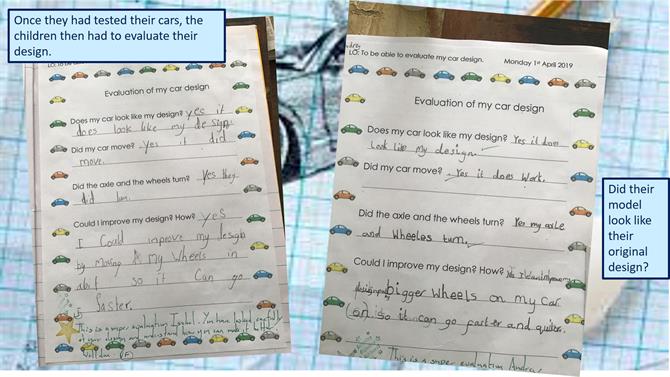 Once they had tested their cars, the
children then had to evaluate their
design.
Evaluation of my car design
Does my car look like my design? yes it
does look like my design
Did my car move? yes it did
move.
Did the axle and the wheels turn? Yes they
did turn.
Could I improve my design? How? yes
I Could improve my design
by moving my wheels in
a bit so it can go
faster.
This is a super evaluation Isobel. You have looked carefully
at your design and
LO: To be able to evaluate my car design. Monday 1st April 2019
Evaluation of my car design
Does my car look like my design? Yes it does
look like my design.
Did my car move? Yes it does work.
Did the axle and the wheels turn? Yes my axle
and wheeles turn.
Could I improve my design? How?
bigger wheels on my car
so it can go faster and
This is a super evaluation
Did their
model
look like
their
original
design?